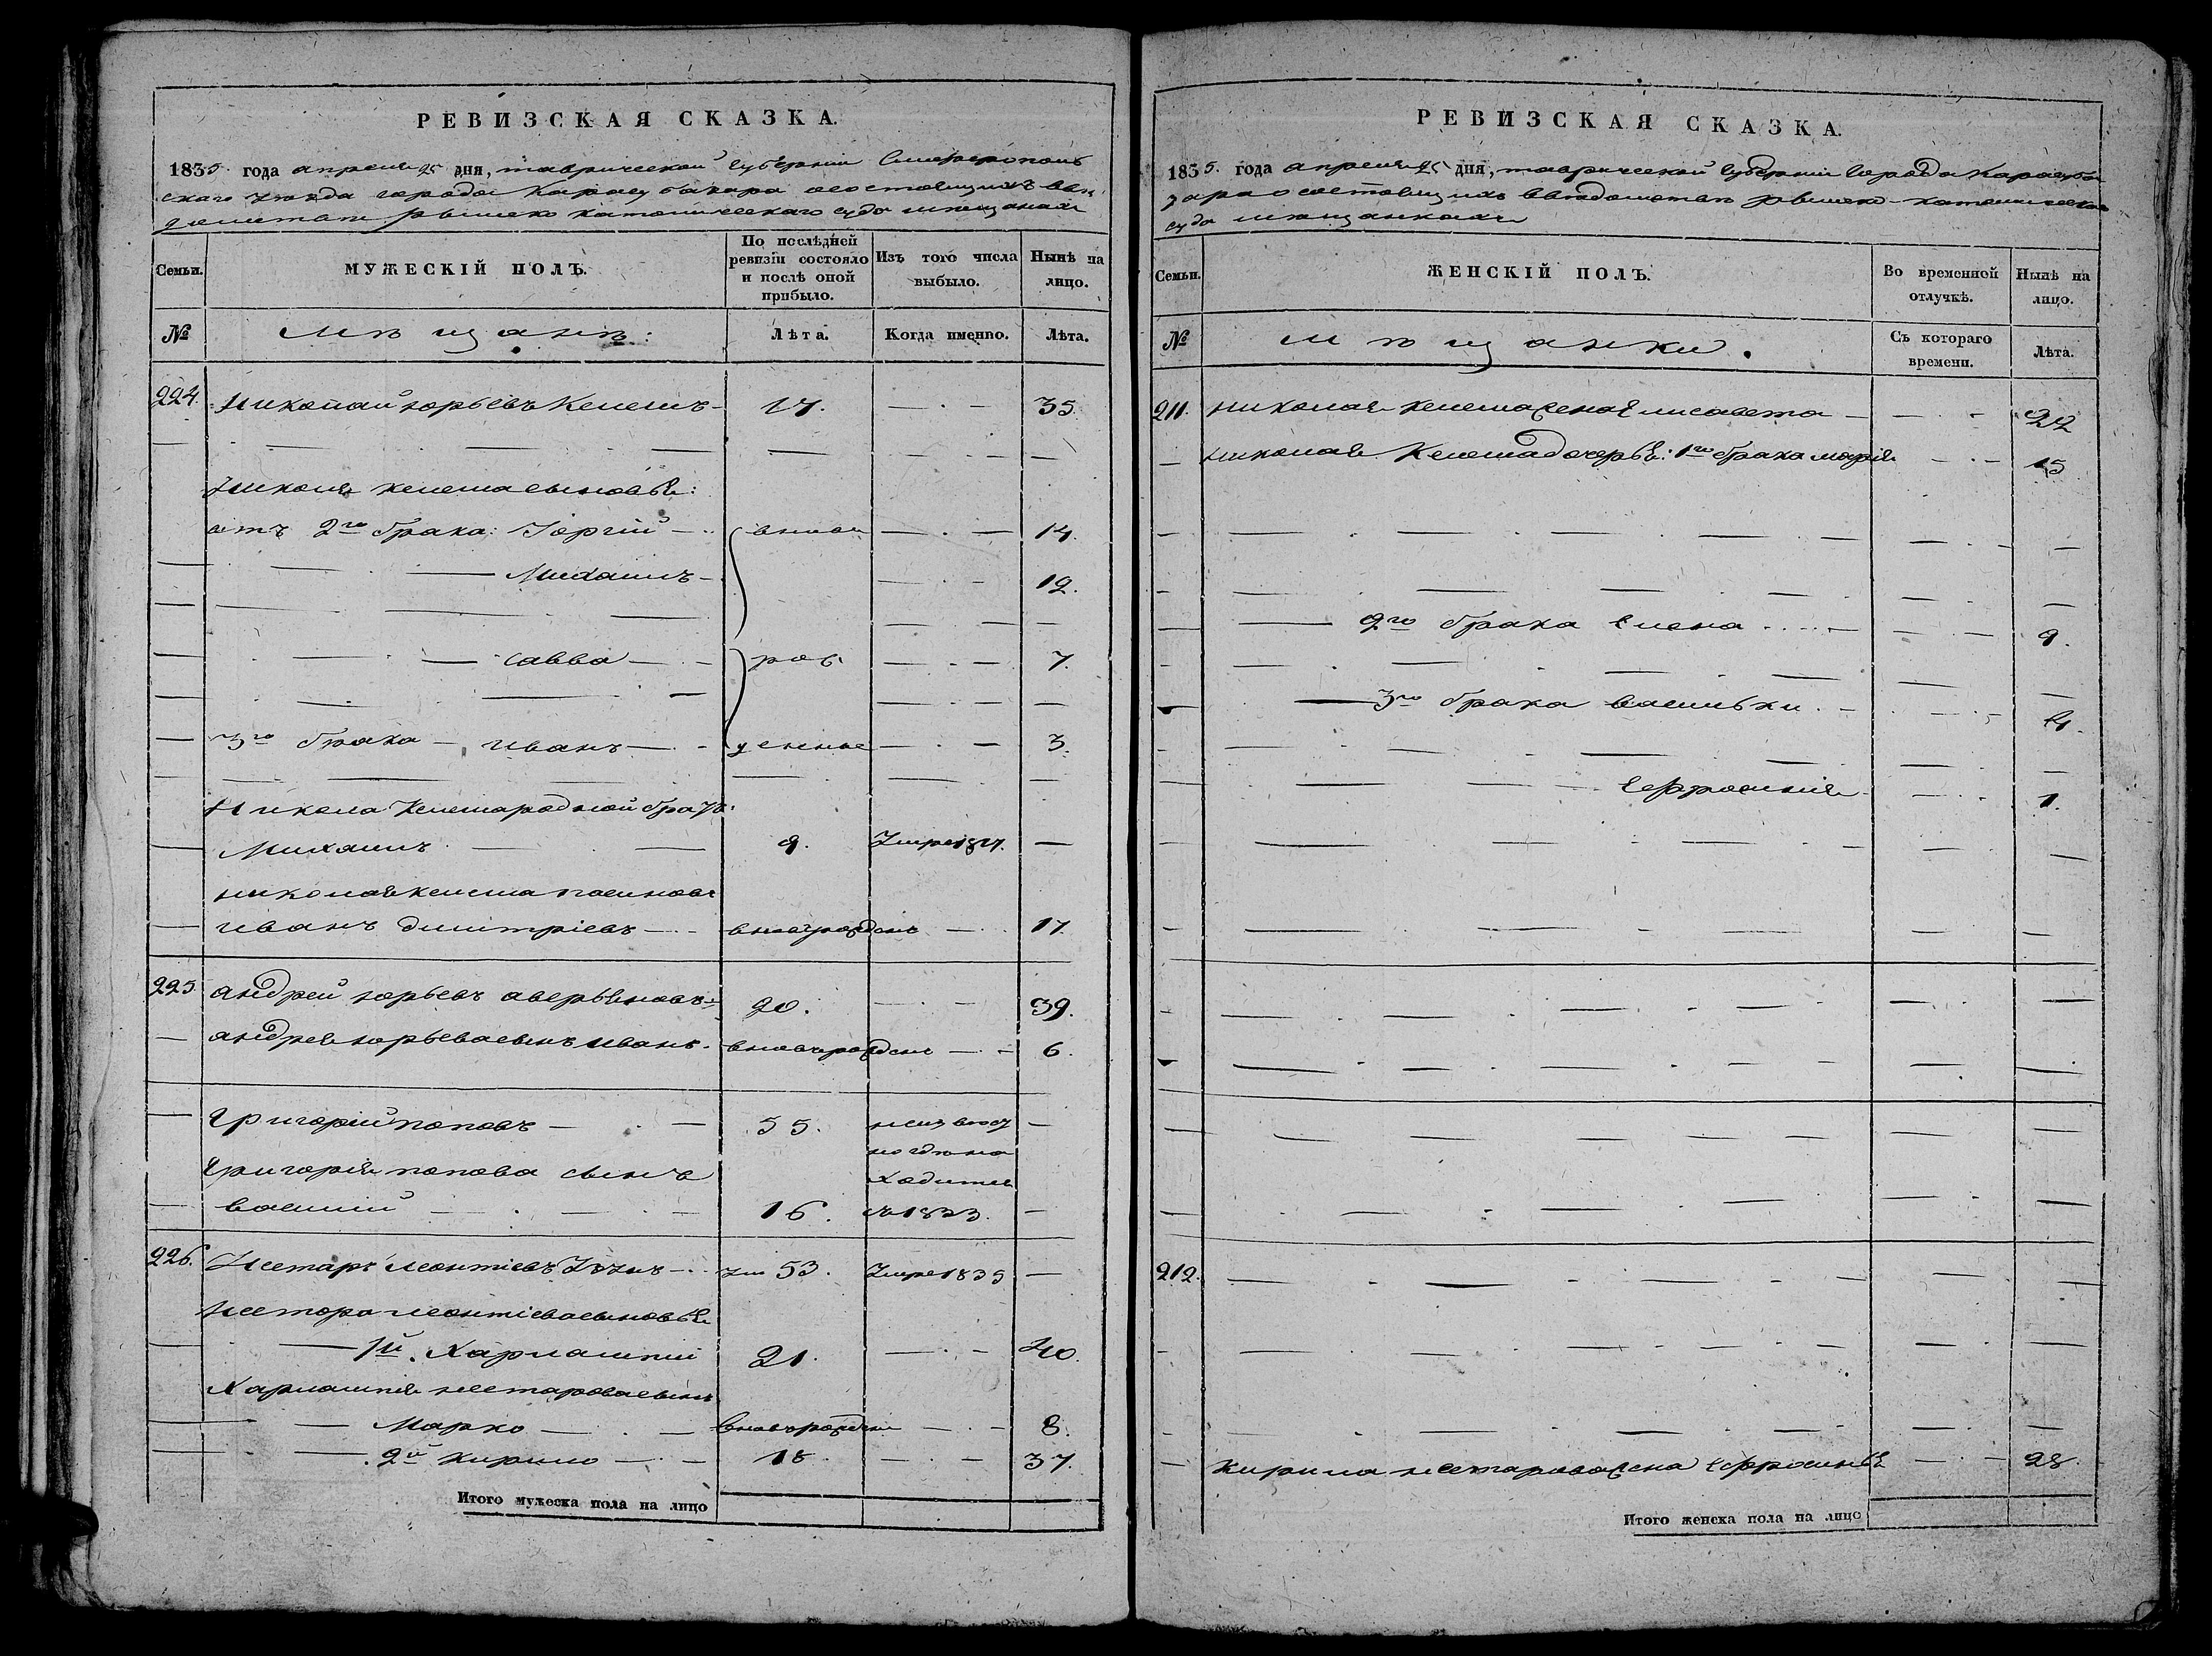 РЕВИЗСКАЯ СКАЗКА.
1835 года апреля 25 дня, таврической губернiи Симферополь
скаго уезда города Карасубазара о состоящихъ
римско католическаго суда мещанахъ
Семьи.
МУЖЕСКІЙ ПОЛЪ.
По послѣдней ревизіи состояло и послѣ оной прибыло.
Изъ того числа выбыло.
Нынѣ на лицо.
№
мещанъ:
Лѣта.
Когда именно.
Лѣта.
224. Николай юрьевъ Келешъ - 17. — 35.
Николая келеша сыновья:
отъ 2го брака: Георгий — вновь — 14.
Михаилъ — 12.
савва — рож — 7.
3го брака — иванъ — денные — 3.
Никола Келеша родной братъ:
Михаилъ 9. Умре 1827. —
николая келеша пасынокъ
иванъ димитріевъ — вновь рожденъ — 17.
225. андрей юрьевъ аверьяновъ 20. — 39.
андрея юрьева сынъ иванъ. вновь рожденъ — 6.
григорій поповъ — 55. неизвес
но где на
ходится
григорія попова сынъ
василий — 16. съ 1823. —
226. Нестаръ леонтіевъ 53. Умре 1835 —
нестора леонтіева сыновья
1й. Харлампий 21. — 40.
Харлампия нестарова сынъ
Марко — вновь рожденъ — 8.
2й кирило — 18. — 37.
Итого мужеска пола на лицо
РЕВИЗСКАЯ СКАЗКА.
1835. года апреля 25 дня, таврической губерніи города Карасуба
зара о состоящихъ в ведомстве римско-католическаго
суда мещанкахъ
Семьи.
ЖЕНСКІЙ ПОЛЪ.
Во временной отлучкѣ.
Нынѣ на лицо.
№
мещанки.
Съ котораго времени.
Лѣта.
211. николая келеша жена Елисавета — 22
николая Келеша дочерья: 1го брака марія — 15
2го брака Елена — 9.
3го брака васильки — 4.
Ефросинія — 1.
212.
кирила нестарова жена Ефросинья — 28.
Итого женска пола на лицо